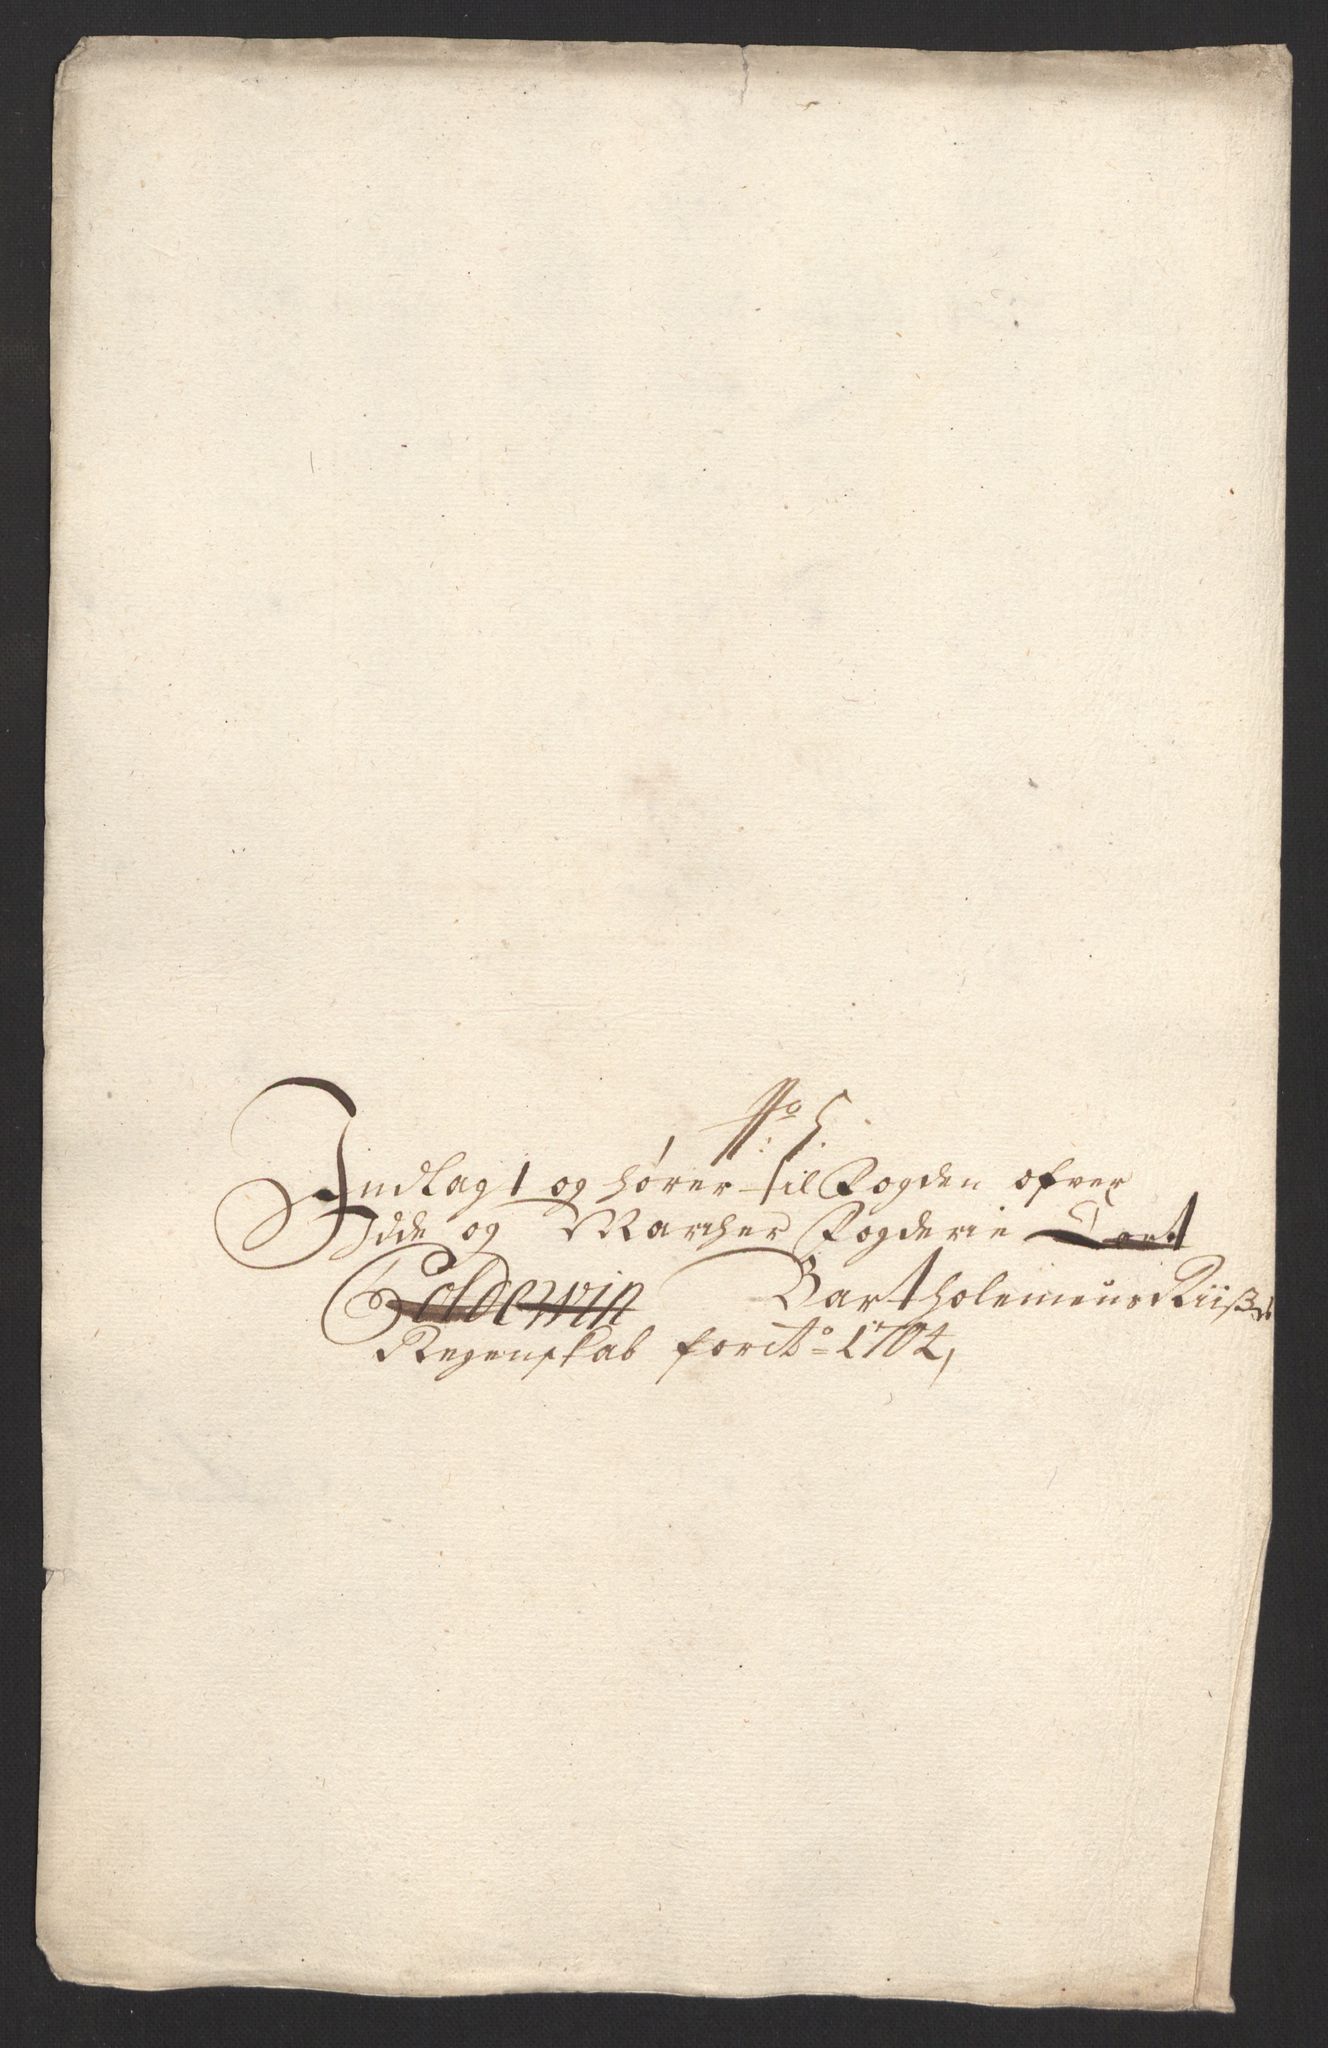 No: 5.
Indlagt og hører til Fogden ofver
Idde og Marcher Fogderie Cort
Colderwin Bartholemeus Riiß
Regenskab for Ao 1704,